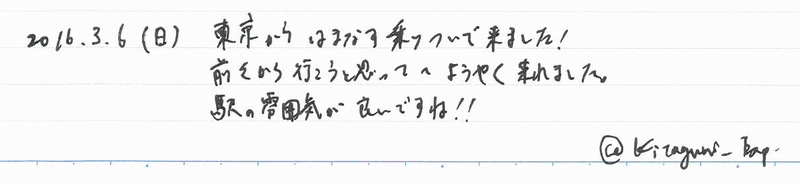 2016.3.6(日) 東京から はまなす 乗りついで来ました!
前々から行こうと思って〜ようやく来れました。
駅の雰囲気が良いですね!!